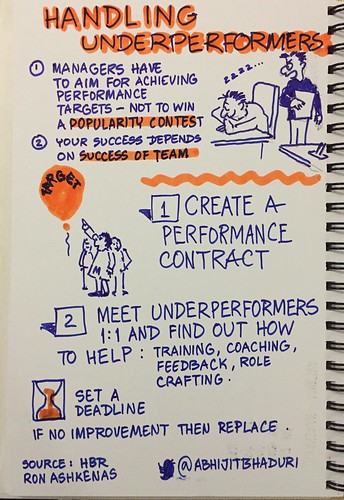 HANDLING
UNDERPERFORMERS
1 MANAGERS HAVE
TO AIM FOR ACHIEVING
PERFORMANCE
TARGETS – NOT TO WIN
A POPULARITY CONTEST
2 YOUR SUCCESS DEPENDS
ON SUCCESS OF TEAM
ZZZZ...
TARGET
M
1 CREATE A
PERFORMANCE
CONTRACT
2 MEET UNDERPERFORMERS
1:1 AND FIND OUT HOW
TO HELP: TRAINING, COACHING,
FEEDBACK, ROLE
CRAFTING.
SET A
DEADLINE
IF NO IMPROVEMENT THEN REPLACE.
SOURCE: HBR
RON ASHKENAS
@ABHIJITBHADURI